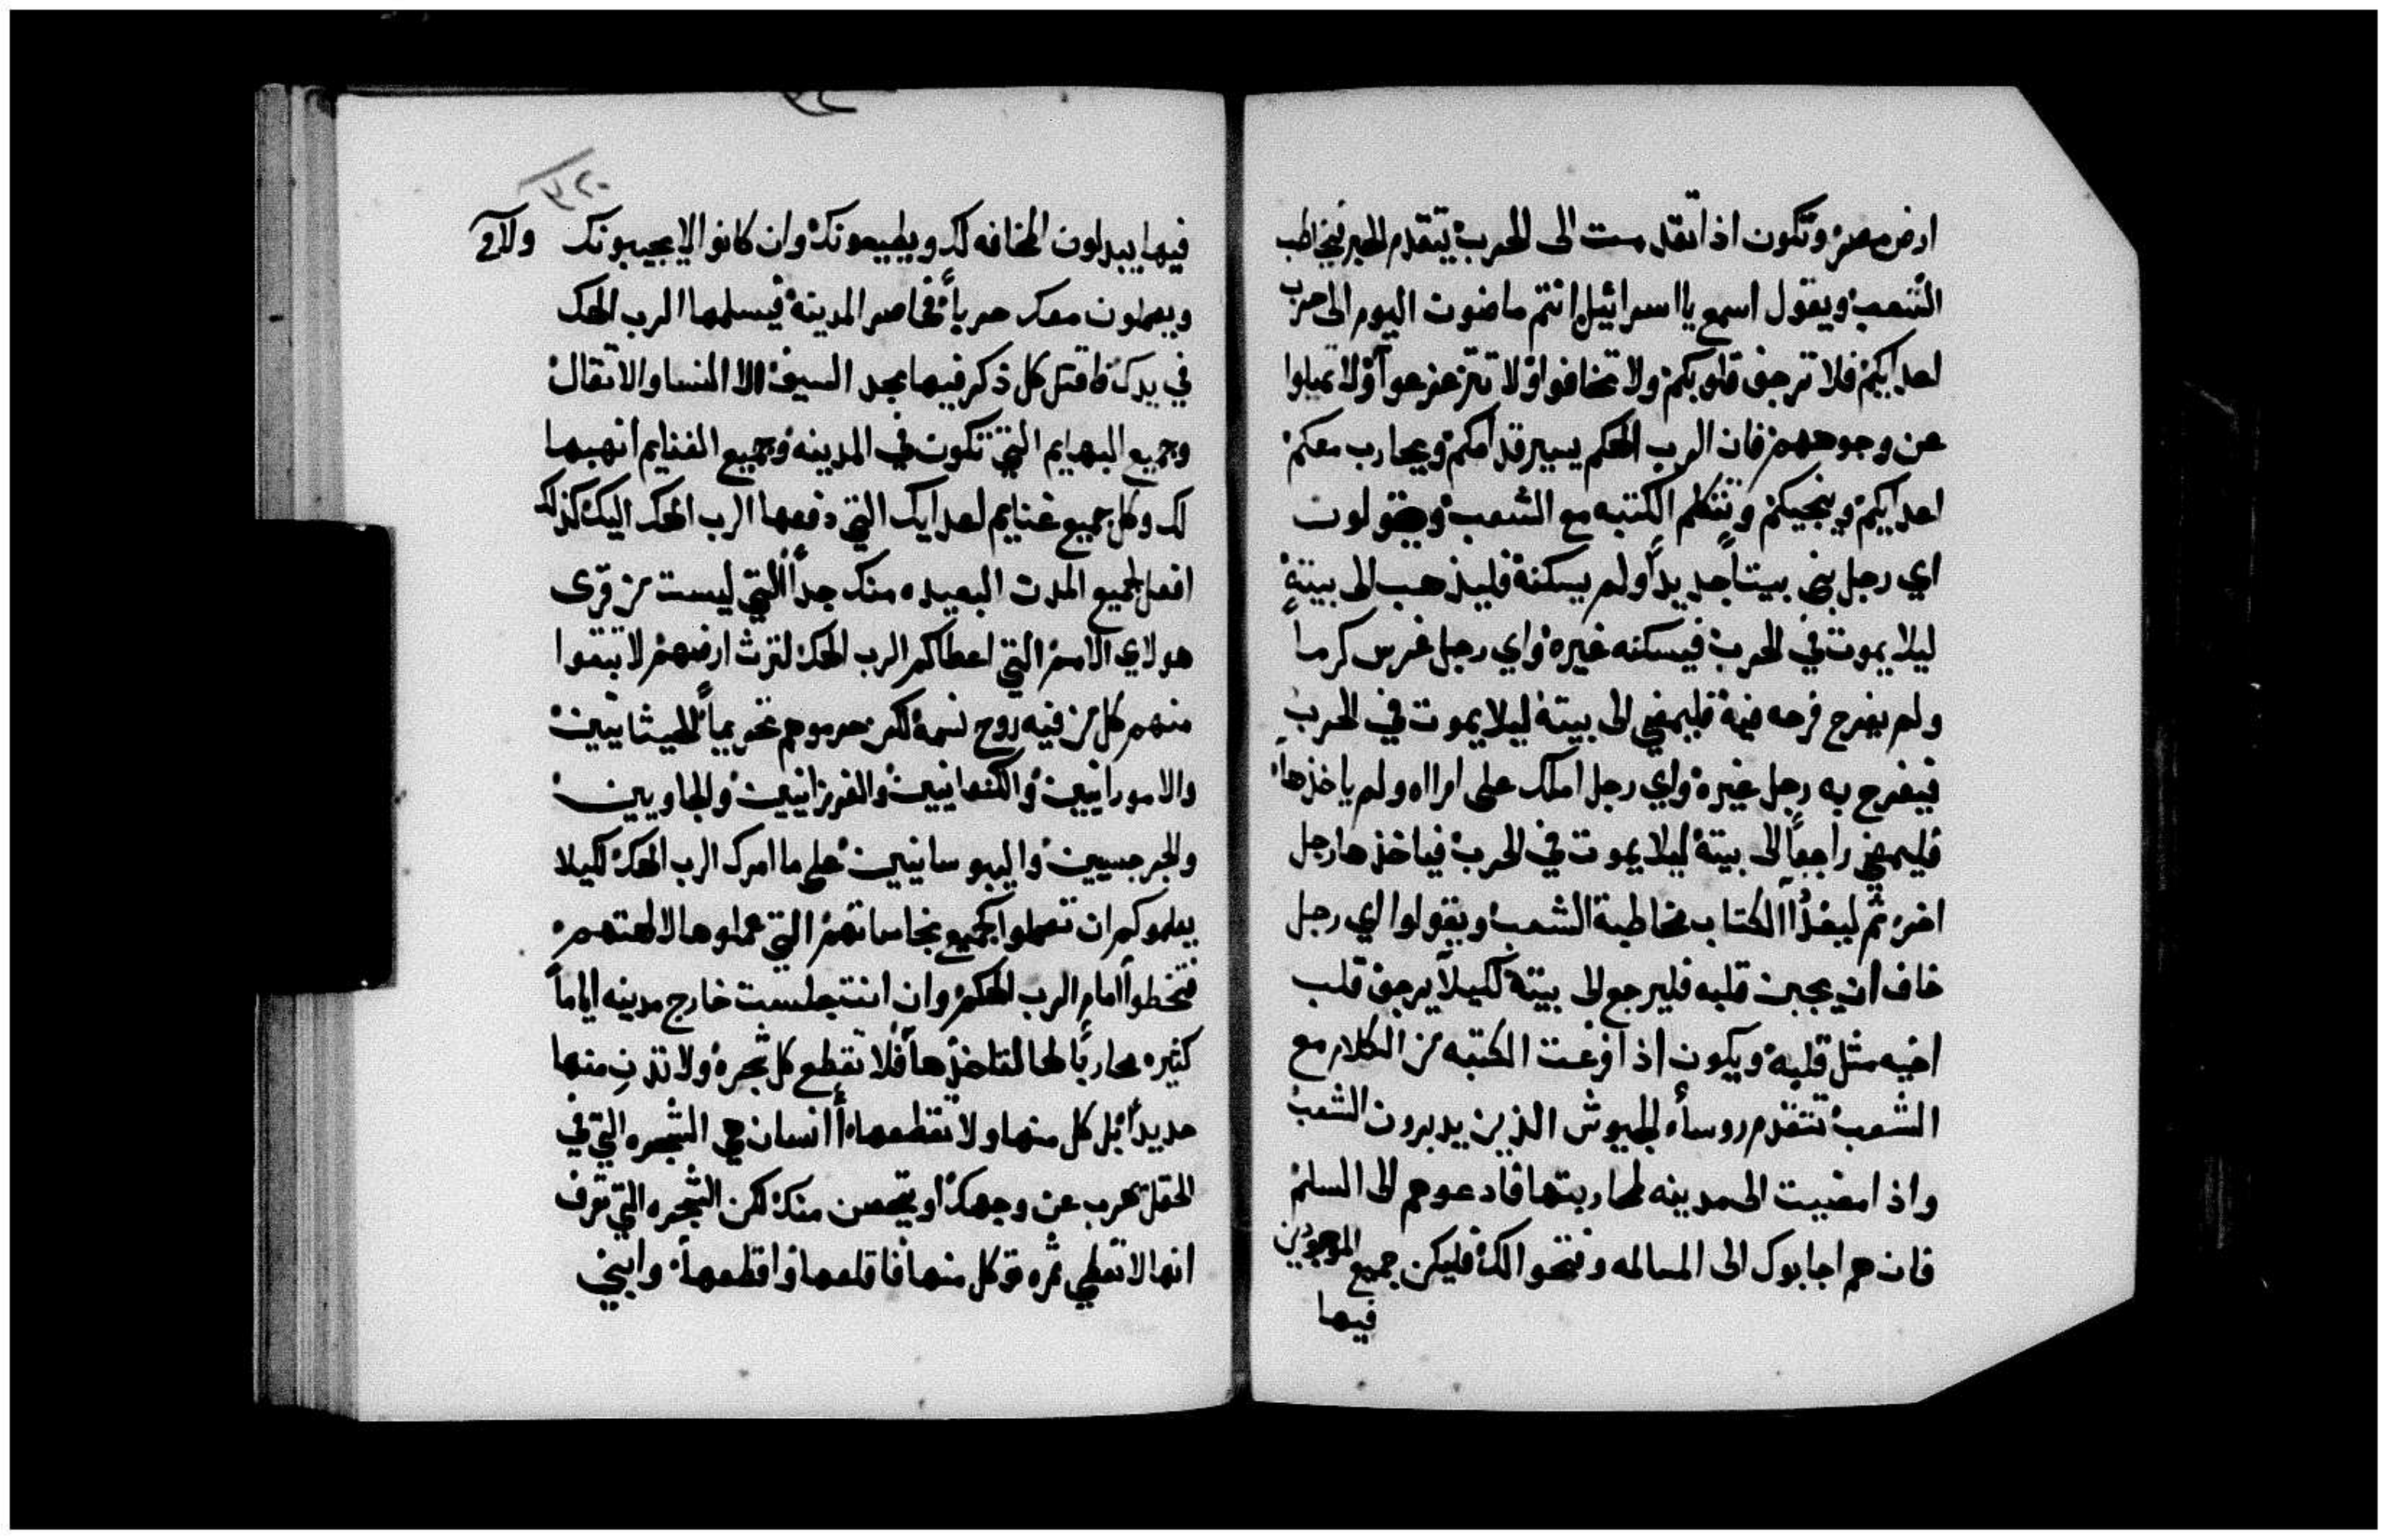 ارض مصر وتكون اذا تقدمت الى الحرب يتقدم الحبر فيخاطب
الشعب ويقول اسمع يا اسرائيل انتم ماضون اليوم الى حرب
اعدايكم فلا ترجف قلوبكم ولا تخافوا ولا تتزعزعوا ولا تميلوا
عن وجوههم فان الرب الهكم يسير قدامكم ويحارب معكم
اعدايكم وينجيكم وتتكلم الكتبه مع الشعب ويقولون
اي رجل بنى بيتاً جديداً ولم يسكنه فليذهب الى بيته
ليلا يموت في الحرب فيسكنه غيره واي رجل غرس كرماً
ولم يفرح فرحه فيه فليمضي الى بيته ليلا يموت في الحرب
فيفرح به رجل غيره واي رجل املك على امراه ولم ياخذها
فليمضي راجعاً الى بيته ليلا يموت في الحرب فياخذها رجل
اخر ثم الكتاب مخاطبة الشعب ويقولوا اي رجل
خاف ان يجبن قلبه فليرجع الى بيته لكيلا يرجف قلب
اخيه مثل قلبه ويكون اذا فرغت الكتبه من الكلام مع
الشعب تتقدم روساء الجيوش الذين يدبرون الشعب
واذا مضيت الى مدينه لمحاربتها فادعوهم الى السلم
فان هم اجابوك الى المسالمه وفتحوا لك فليكن جميع الموجودين
فيها
٣٢٠
فيها يبدلون المخافه لك ويطيعونك وان كانوا لا يجيبونك
ويعملون معك حرباً فحاصر المدينة فيسلمها الرب الهك
في يدك فاقتل كل ذكر فيها بحد السيف الا النسا والاثقال
وجميع البهايم التي تكون في المدينه وجميع الغنايم انهبها
لك وكل جميع غنايم اعدايك التي دفعها الرب الهك اليك كذلك
افعل بجميع المدن البعيده منك جداً التي ليست من قرى
هولاي الامم التي اعطاكم الرب الهك لترث ارضهم لا تبقوا
منهم كل من فيه روح نسمة لكن حرموهم تحريماً للحيثانيين
والامورانيين والكنعانيين والفرزانيين والحاويين
والجرجسيين واليبوسانيين على ما امرك الرب الهك لكيلا
يعلموكم ان تعملوا كجميع نجاساتهم التي عملوها لالهتهم
فتخطوا امام الرب الهكم وان انت جلست خارج مدينه اياماً
كثيره محارباً لها لتاخذها فلا تقطع كل شجره ولا تدن منها
حديداً بل كل منها ولا تقطعها أانسان هي الشجره التي في
الحقل تهرب عن وجهك او يتحصن منك لكن الشجره التي تعرف
انها لا تعطي ثمره توكل منها فاقلعها واقطعها وابني